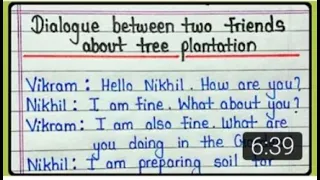 Dialogue between two friends
about tree plantation
Vikram : Hello Nikhil. How are you?
Nikhil : I am fine. What about you?
Vikram : I am also fine. What are
you doing in the
Nikhil : I am preparing soil for
6:39